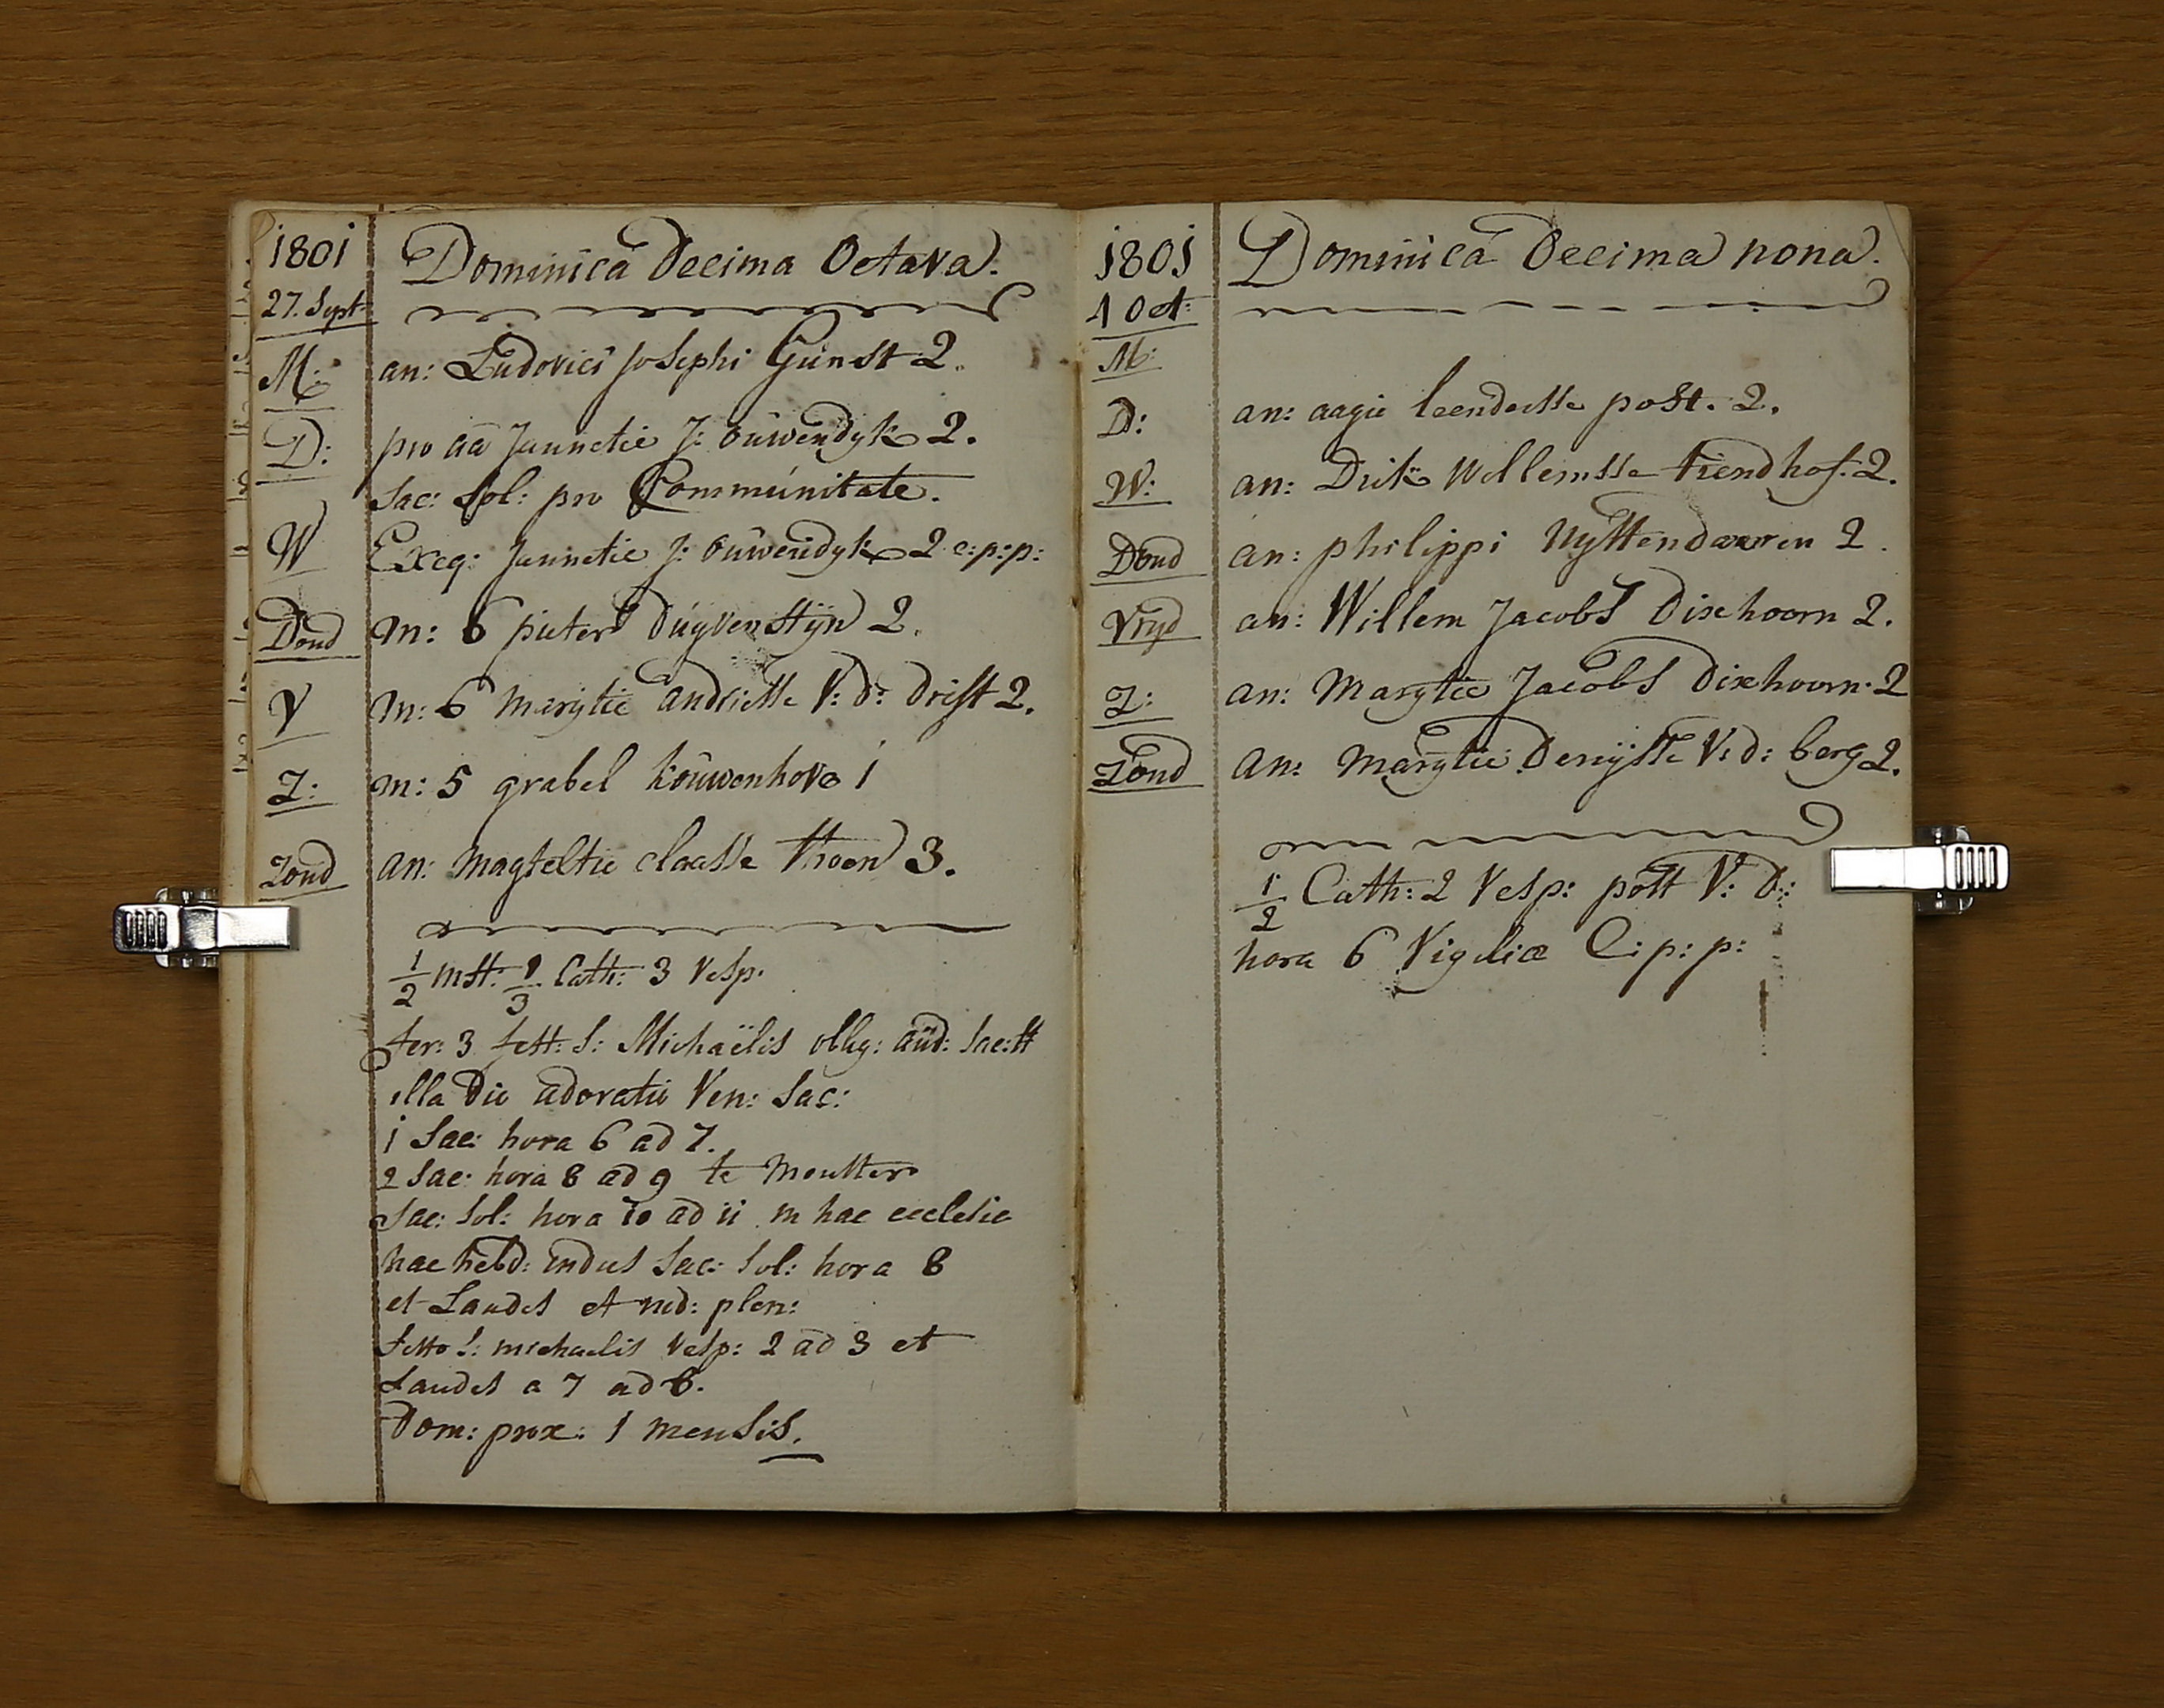 1801
Dominica Decima Octava.
27. Sept
M: an: Ludovici Josephi Gunst 2.
D: pro aa Jannetie J: ouwendyk 2.
Sac: Sol: pro Communitate.
W Exeq: Jannetie J: ouwendyk 2 c:p:p:
Dond m: 6 pieter duyvenstijn 2.
V m: 6 Marijtie andriesse V: d: drift 2.
Z: m: 5 grabel kouwenhove 1
Zond an: Magteltie claasse thoen 3.
1/2 mst: 1/3 Cath: 3 Vesp.
fer: 3 fest: S: Michaëlis oblig: aud: Sac: et
illa die adoratii Ven: Sac:
1 Sac: hora 6 ad 7.
2 Sac: hora 8 ad 9 te Monster
Sac: Sol: hora 10 ad 11 in hac ecclesia
hac hebd: indies Sac: Sol: hora 8
et Laudes et ind: plen:
festo S: michaelis Vesp: 2 ad 3 et
Laudes a 7 ad 8.
Dom: prox: 1 mensis.
1801
Dominica Decima nona.
1 Oct:
M:
D: an: aagie leendertse post. 2.
W: an: Dirk Willemsse hendhof: 2.
Dond an: philippi Uyttendaaren 2.
Vryd an: Willem Jacobs Dixhoorn 2.
Z: an: Marytie Jacobs Dixhoorn. 2
Zond an: Marytie Denysse V: d: berg 2.
1/2 Cath: 2 Vesp: post V: D:
hora 6 Vigiliæ C: p: p: